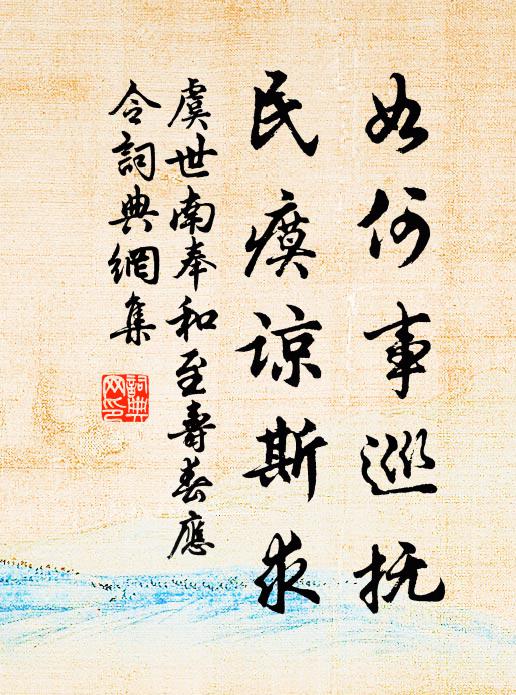 如何事巡抚
民瘼谅斯求
虞世南奉和至壽春應
令詞典網集
詞典
网印